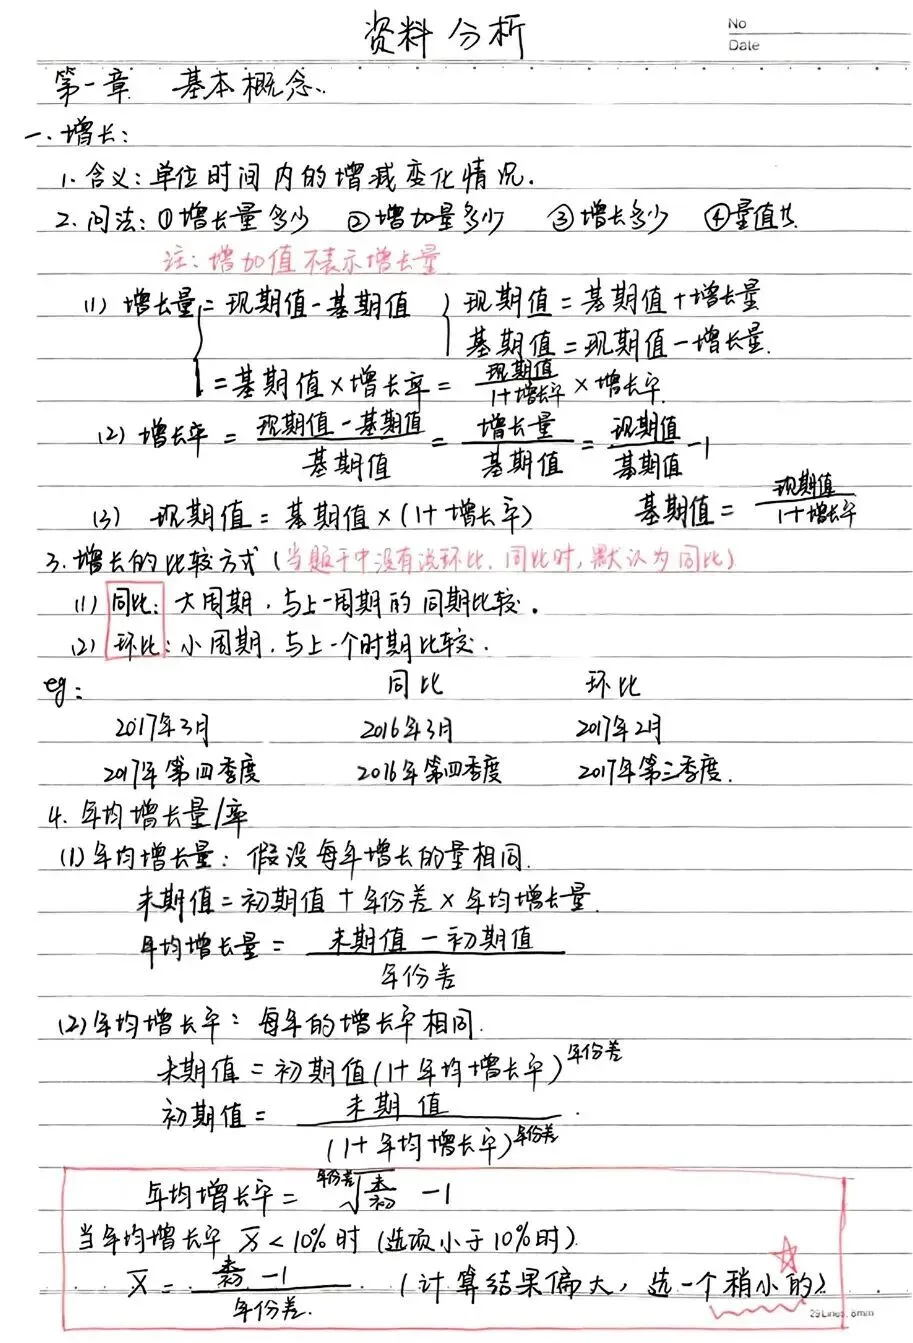 资料分析
No
Date
第一章 基本概念.
一.增长:
1.含义:单位时间内的增减变化情况.
2.问法:①增长量多少 ②增加量多少 ③增长多少 ④量值大.
注:增加值不表示增长量
(1) 增长量=现期值-基期值 { 现期值=基期值+增长量
基期值=现期值-增长量.
=基期值×增长率=现期值/(1+增长率)×增长率.
(2) 增长率=(现期值-基期值)/基期值=增长量/基期值=现期值/基期值-1
(3) 现期值=基期值×(1+增长率) 基期值=现期值/(1+增长率)
3.增长的比较方式(当题干中没有说环比、同比时,默认为同比)
(1) 同比:大周期.与上一周期的同期比较.
(2) 环比:小周期.与上一个时期比较.
eg: 同比 环比
2017年3月 2016年3月 2017年2月
2017年第四季度 2016年第四季度 2017年第三季度.
4.年均增长量/率
(1)年均增长量:假设每年增长的量相同.
末期值=初期值+年份差×年均增长量.
年均增长量=(末期值-初期值)/年份差
(2)年均增长率:每年的增长率相同.
末期值=初期值(1+年均增长率)^年份差
初期值=末期值/(1+年均增长率)^年份差.
年均增长率=年份差√(末/初) -1
当年均增长率 x̄<10%时(选项小于10%时)
x̄=(末/初-1)/年份差. (计算结果偏大,选一个稍小的)
29Lines, 8mm